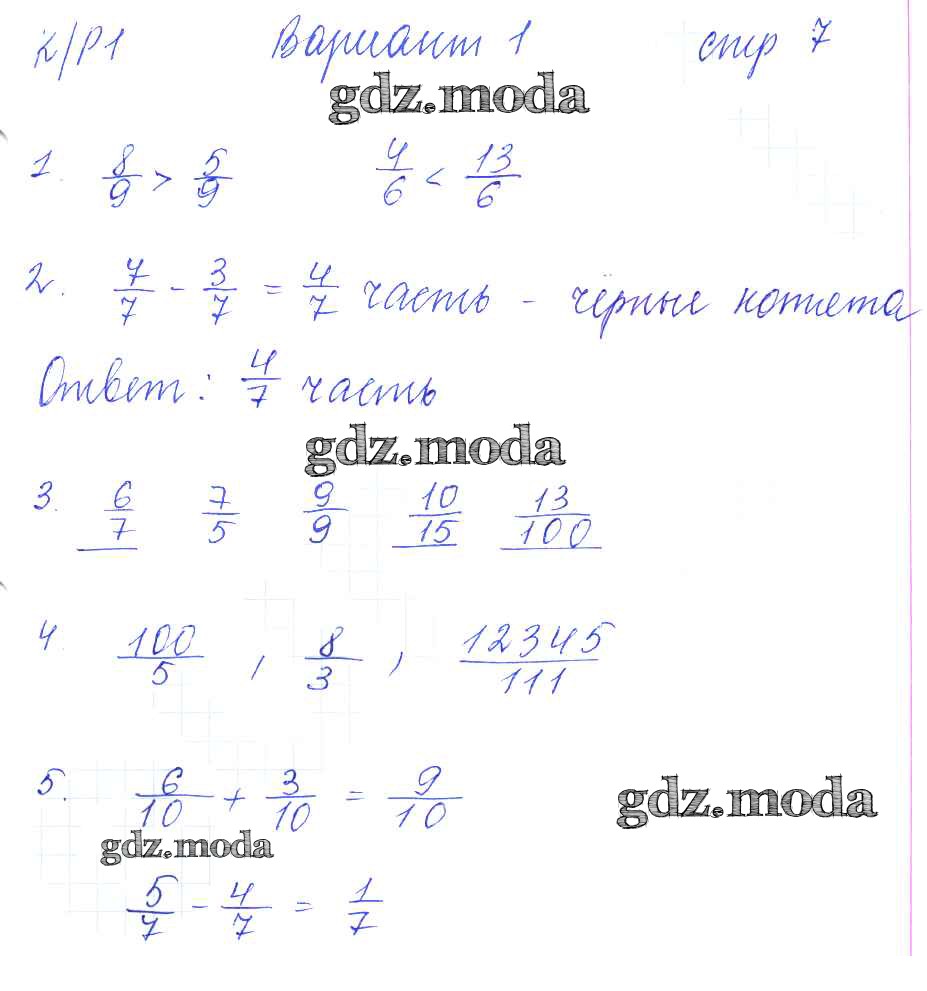 К/Р1 Вариант 1 стр 7
gdz.moda
1. 8/9 > 5/9 4/6 < 13/6
2. 7/7 - 3/7 = 4/7 часть - чёрные котята
Ответ: 4/7 часть
gdz.moda
3. 6/7 7/5 9/9 10/15 13/100
4. 100/5 , 8/3 , 12345/111
5. 6/10 + 3/10 = 9/10
gdz.moda
gdz.moda
5/7 - 4/7 = 1/7